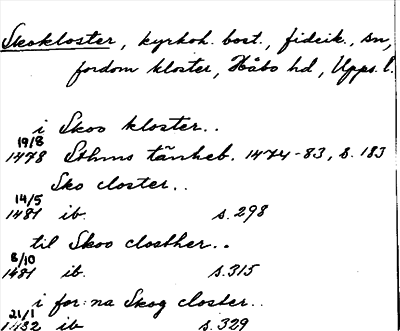 Skokloster, kyrkoh. bost., fideik., sn,
fordom kloster, Håbo hd, Upps. l.
i Skoo kloster..
19/8
1478 Sthms tänkeb. 1474-83, s. 183
Sko closter..
14/5
1481 ib. s. 298
til Skoo closther..
8/10
1481 ib. s. 315
i for:na Skog closter..
21/1
1482 ib s. 329